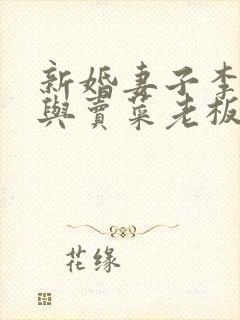 新婚妻子李
與賣菜老板
花缘